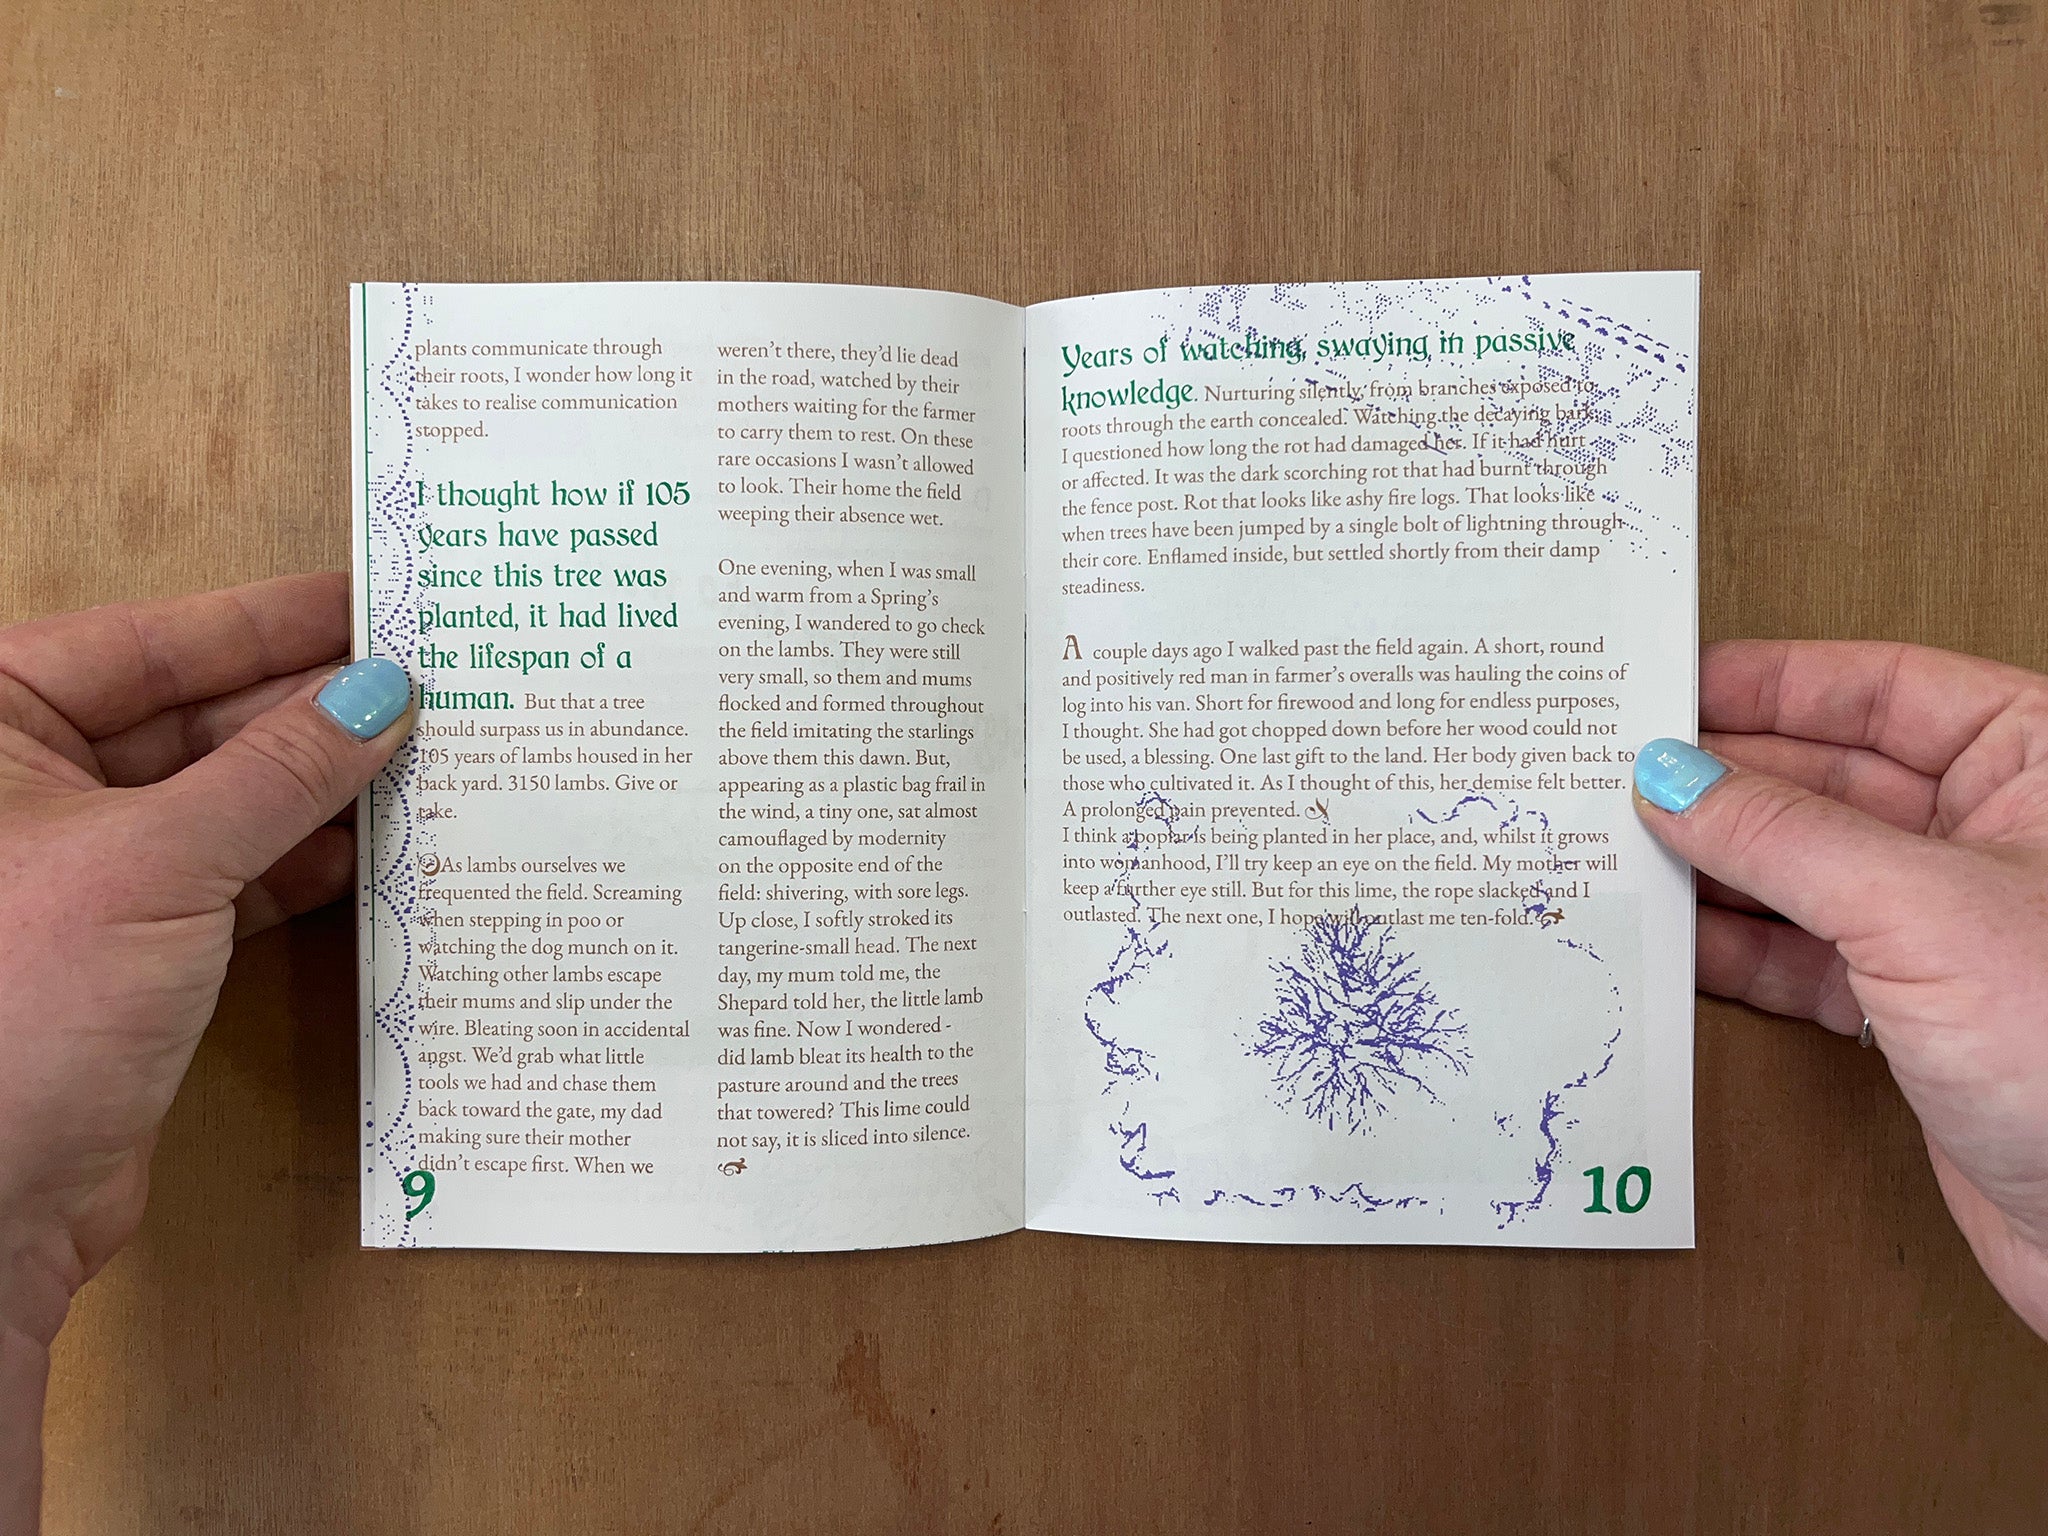 plants communicate through
their roots, I wonder how long it
takes to realise communication
stopped.
I thought how if 105
years have passed
since this tree was
planted, it had lived
the lifespan of a
human. But that a tree
should surpass us in abundance.
105 years of lambs housed in her
back yard. 3150 lambs. Give or
take.
As lambs ourselves we
frequented the field. Screaming
when stepping in poo or
watching the dog munch on it.
Watching other lambs escape
their mums and slip under the
wire. Bleating soon in accidental
angst. We'd grab what little
tools we had and chase them
back toward the gate, my dad
making sure their mother
didn't escape first. When we
9
weren't there, they'd lie dead
in the road, watched by their
mothers waiting for the farmer
to carry them to rest. On these
rare occasions I wasn't allowed
to look. Their home the field
weeping their absence wet.
One evening, when I was small
and warm from a Spring's
evening, I wandered to go check
on the lambs. They were still
very small, so them and mums
flocked and formed throughout
the field imitating the starlings
above them this dawn. But,
appearing as a plastic bag frail in
the wind, a tiny one, sat almost
camouflaged by modernity
on the opposite end of the
field: shivering, with sore legs.
Up close, I softly stroked its
tangerine-small head. The next
day, my mum told me, the
Shepard told her, the little lamb
was fine. Now I wondered -
did lamb bleat its health to the
pasture around and the trees
that towered? This lime could
not say, it is sliced into silence.
Years of watching, swaying in passive
knowledge. Nurturing silently, from branches exposed to
roots through the earth concealed. Watching the decaying bark,
I questioned how long the rot had damaged her. If it had hurt
or affected. It was the dark scorching rot that had burnt through
the fence post. Rot that looks like ashy fire logs. That looks like
when trees have been jumped by a single bolt of lightning through
their core. Enflamed inside, but settled shortly from their damp
steadiness.
A couple days ago I walked past the field again. A short, round
and positively red man in farmer's overalls was hauling the coins of
log into his van. Short for firewood and long for endless purposes,
I thought. She had got chopped down before her wood could not
be used, a blessing. One last gift to the land. Her body given back to
those who cultivated it. As I thought of this, her demise felt better.
A prolonged pain prevented.
I think a poplar is being planted in her place, and, whilst it grows
into womanhood, I'll try keep an eye on the field. My mother will
keep a further eye still. But for this lime, the rope slacked and I
outlasted. The next one, I hope will outlast me ten-fold.
10